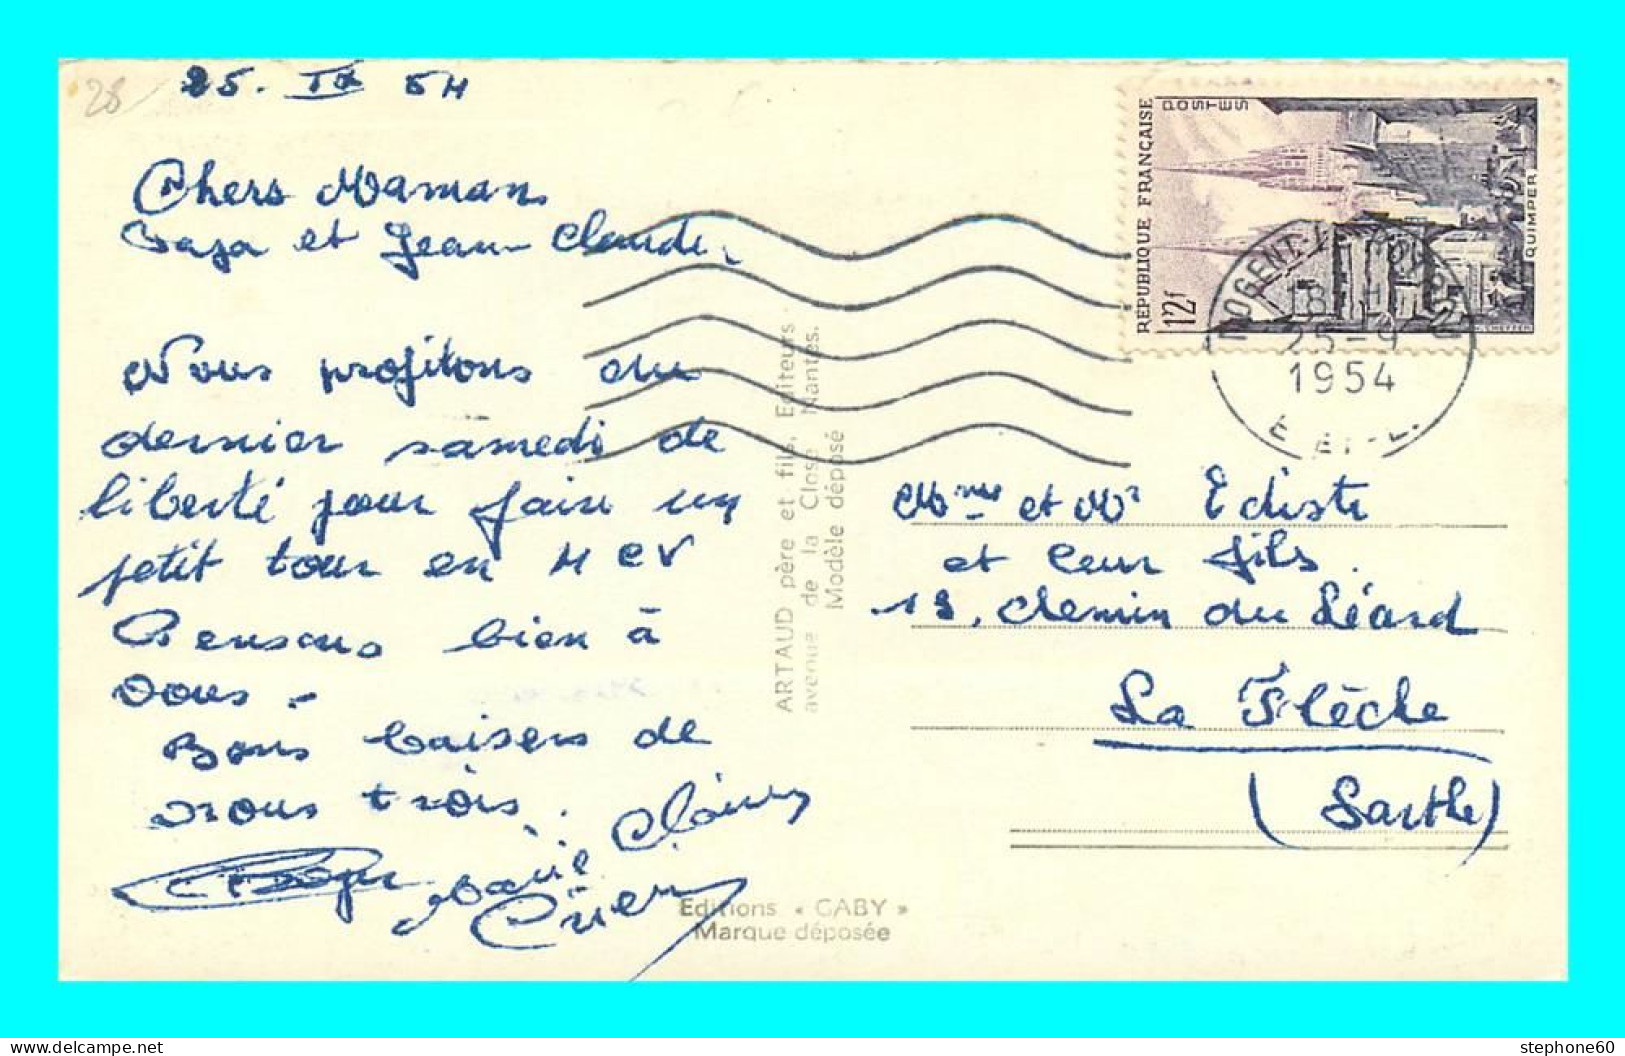 28
25. IX 54
Chers Maman
et Jean-Claude,
Nous profitons du
dernier samedi de
liberté pour faire un
petit tour en 4 CV
Pensons bien à
vous -
Bons baisers de
nous trois.
Roger
ARTAUD père et fils, Editeurs
avenue de la Close Nantes.
Modèle déposé
Editions « GABY »
Marque déposée
RÉPUBLIQUE FRANÇAISE
POSTES
12f
QUIMPER
NOGENT-LE-ROTROU
18 H
25-9
1954
E. ET-L.
Mme et Mr Ediste
et leur fils.
chemin du Léard
La Flèche
(Sarthe)
stephone60